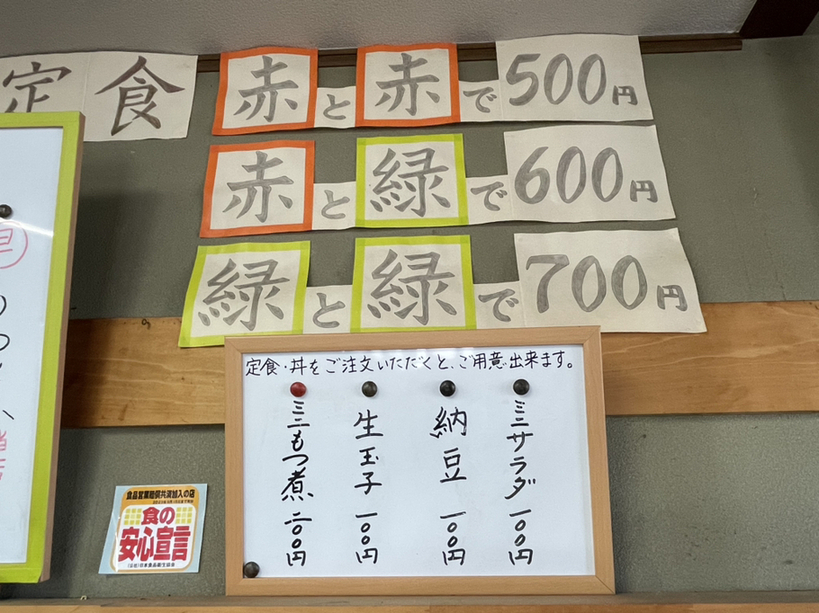 定食
赤と赤で500円
赤と緑で600円
緑と緑で700円
定食・丼をご注文いただくと、ご用意出来ます。
ミニサラダ 一〇〇円
納豆 一〇〇円
生玉子 一〇〇円
ミニもつ煮 二〇〇円
食品営業賠償共済加入の店
食の
安心宣言